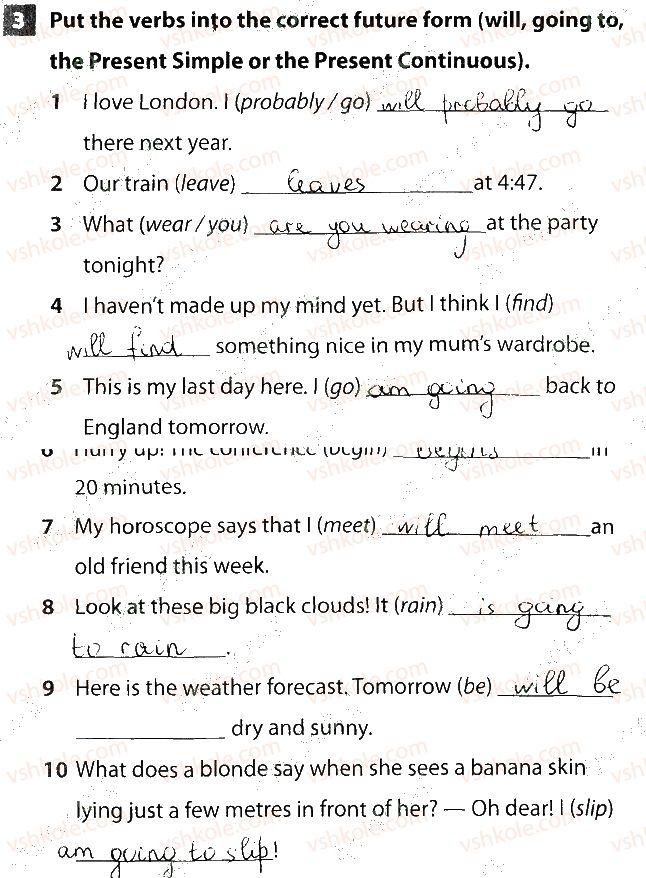 3 Put the verbs into the correct future form (will, going to,
the Present Simple or the Present Continuous).
1 I love London. I (probably / go) will probably go
there next year.
2 Our train (leave) leaves at 4:47.
3 What (wear / you) are you wearing at the party
tonight?
4 I haven't made up my mind yet. But I think I (find)
will find something nice in my mum's wardrobe.
5 This is my last day here. I (go) am going back to
England tomorrow.
6 Hurry up! The conference (begin) begins in
20 minutes.
7 My horoscope says that I (meet) will meet an
old friend this week.
8 Look at these big black clouds! It (rain) is going
to rain.
9 Here is the weather forecast. Tomorrow (be) will be
dry and sunny.
10 What does a blonde say when she sees a banana skin
lying just a few metres in front of her? — Oh dear! I (slip)
am going to slip!
vshkole.com